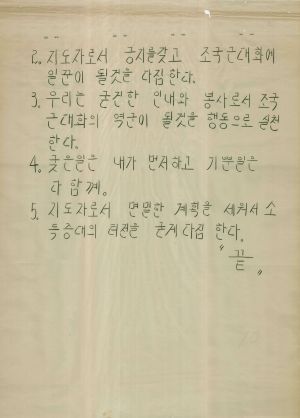 2. 지도자로서 긍지를갖고 조국근대화에
일꾼이 될것을 다짐한다.
3. 우리는 굳건한 인내와 봉사로서 조국
근대화의 역군이 될것을 행동으로 실천
한다.
4. 궂은일은 내가 먼저하고 기쁜일은
다 함께.
5. 지도자로서 면밀한 계획을 세워서 소
득증대의 터전을 굳게 다짐 한다.
"끝"